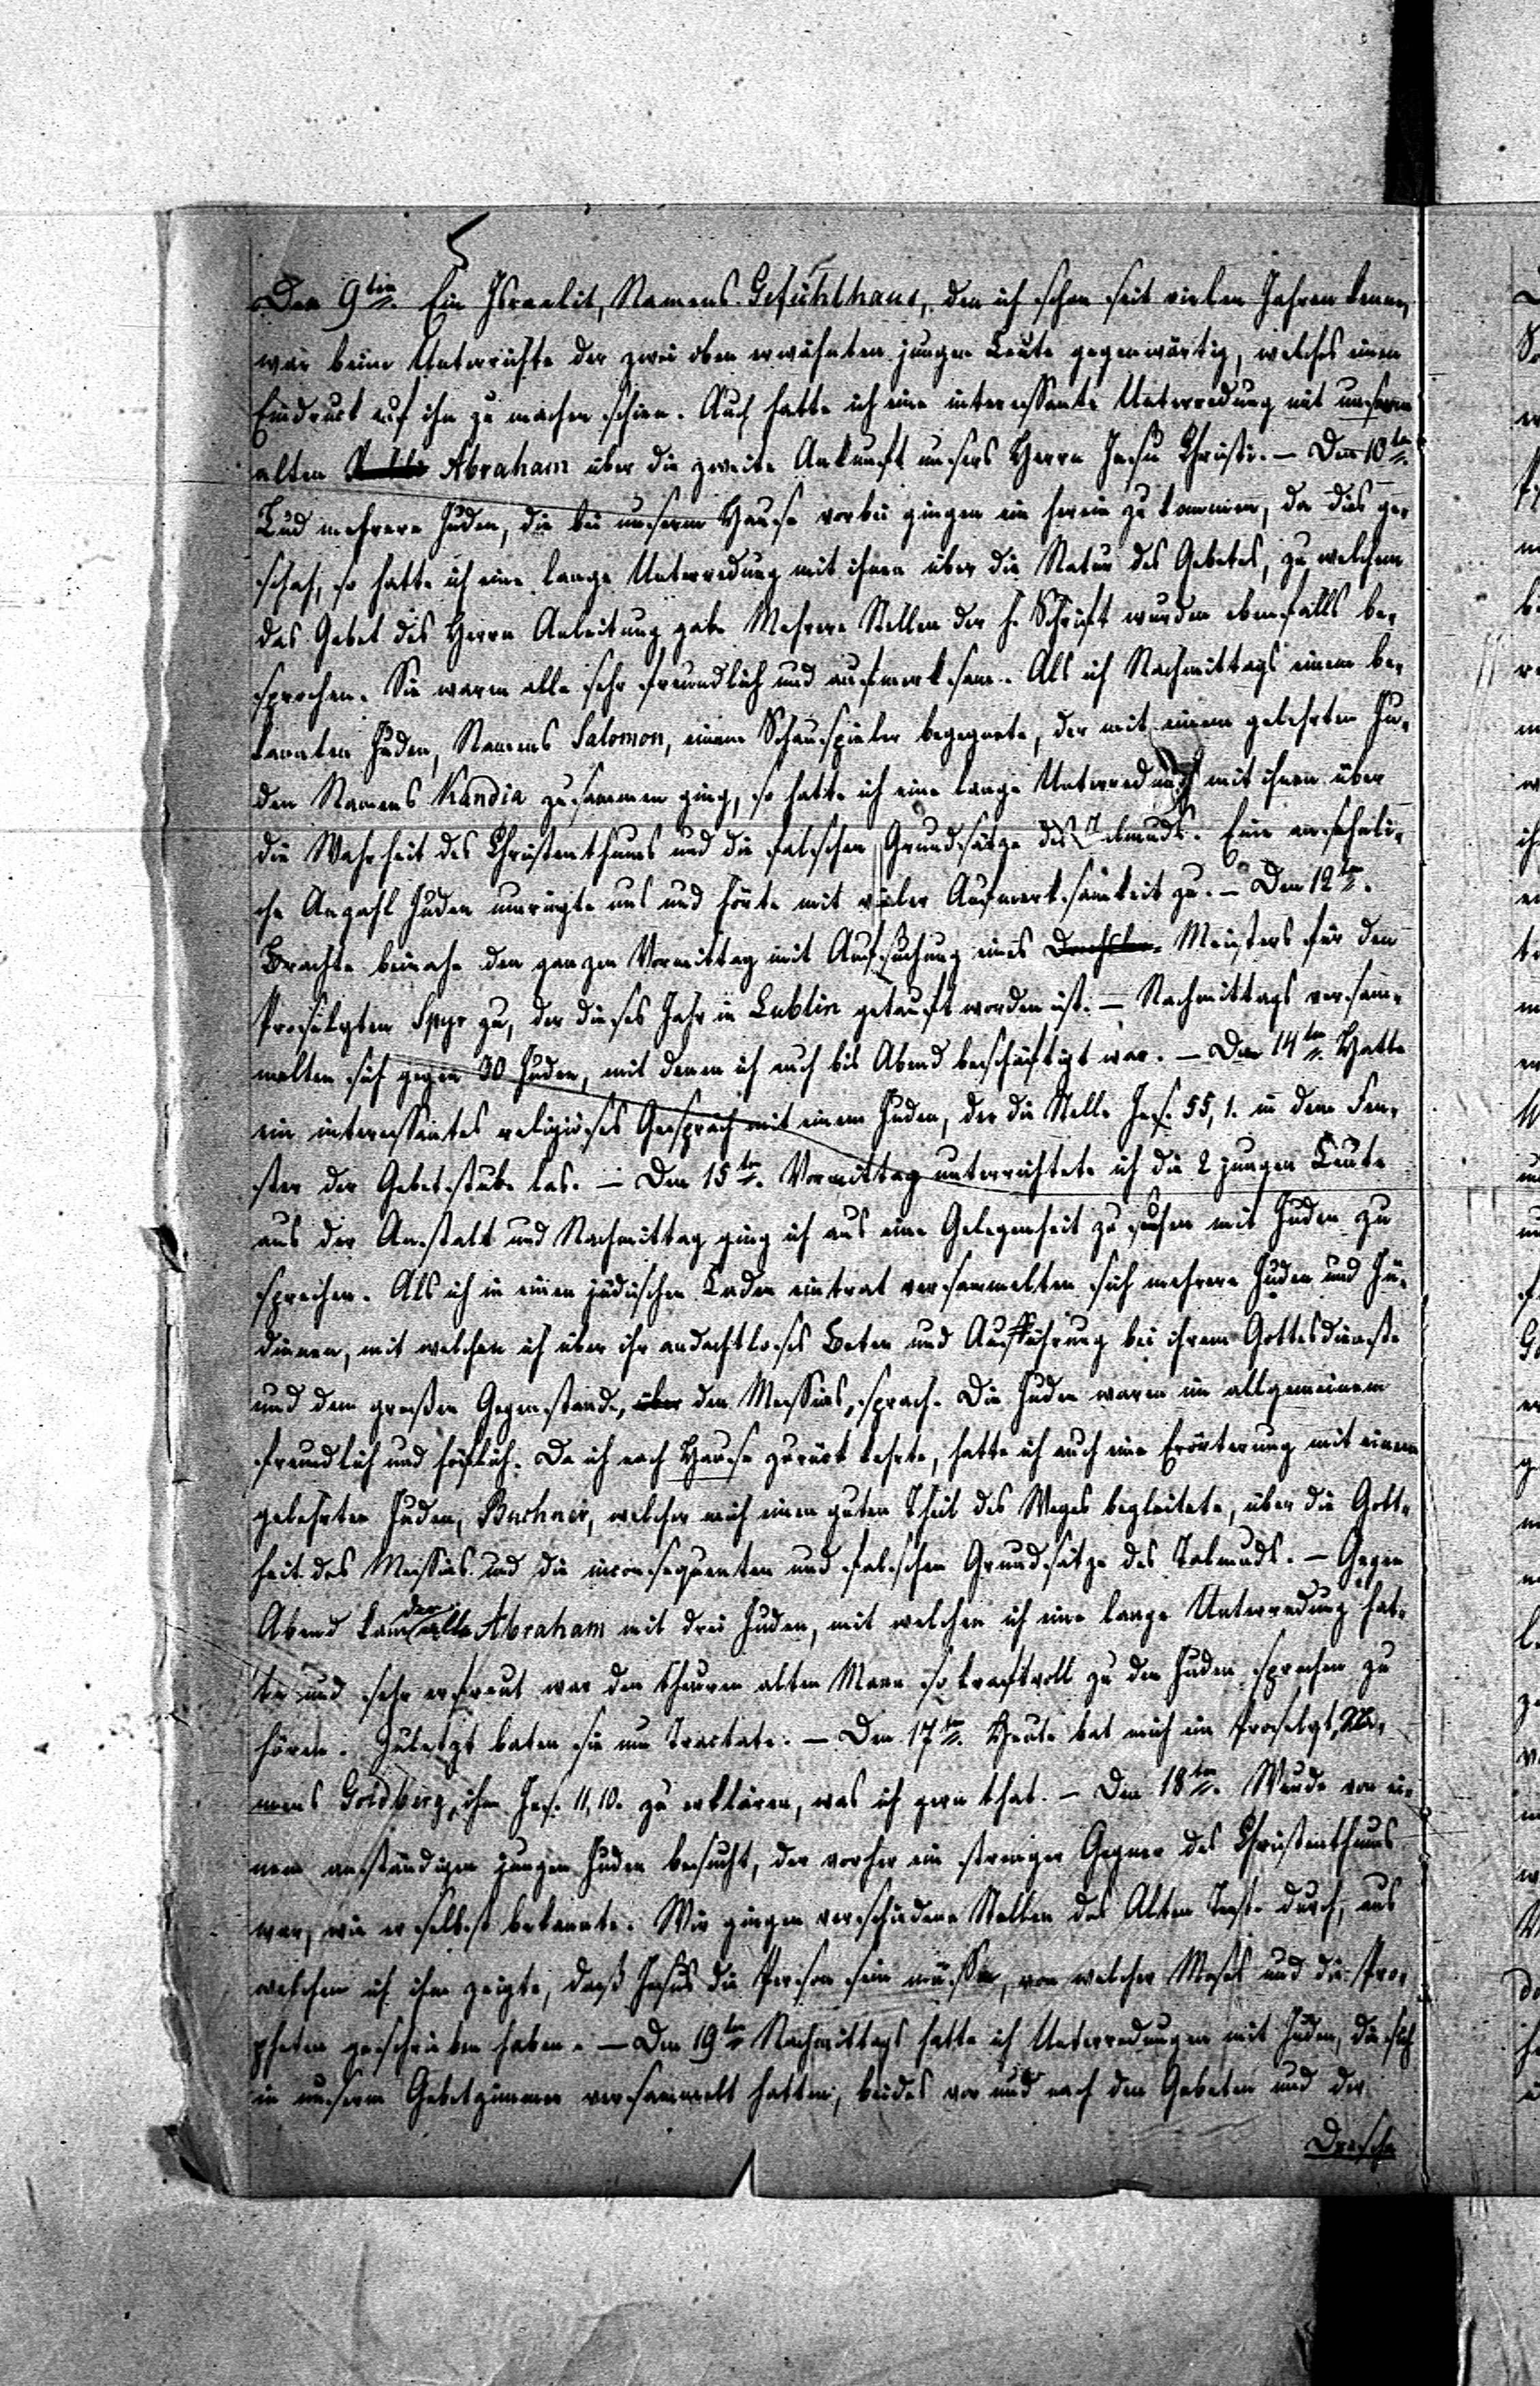 Den 9ten. Ein Israelit, Namens Gefühlhaus, den ich schon seit vielen Jahren kenne,
war beim Unterrichte der zwei oben erwähnten jungen Leute gegenwärtig, welches einen
Eindruck auf ihn zu machen schien. Auch hatte ich eine interessante Unterredung mit unserm
alten Abraham über die zweite Ankunft unsers Herrn Jesu Christi. – Den 10ten.
Lud mehrere Juden, die bei unserm Hause vorbei gingen ein herein zu kommen, da dies ge-
schah, so hatte ich eine lange Unterredung mit ihnen über die Natur des Gebetes, zu welchem
das Gebet des Herrn Anleitung gab. Mehrere Stellen der h. Schrift wurden ebenfalls be-
sprochen. Sie waren alle sehr freundlich und aufmerksam. Als ich Nachmittags einem be-
kannten Juden, Namens Salomon, einem Schauspieler begegnete, der mit einem gelehrten Ju-
den Namens Kandia zusammen ging, so hatte ich eine lange Unterredung mit ihnen über
die Wahrheit des Christenthums und die falschen Grundsätze des Talmuds. Eine ansehnli-
che Anzahl Juden umringte uns und hörte mit vieler Aufmerksamkeit zu. – Den 12ten.
Brachte beinahe den ganzen Vormittag mit Aufsuchung eines Meisters für den
Proselyten zu, der dieses Jahr in Lublin getauft worden ist. – Nachmittags versam-
melten sich gegen 30 Juden, mit denen ich auch bis Abend beschäftigt war. – Den 14ten. Hatte
ein interessantes religiöses Gespräch mit einem Juden, der die Stelle Jes. 55, 1. in dem Fen-
ster der Gebetstube las. – Den 15ten. Vormittag unterrichtete ich die 2 jungen Leute
aus der Anstalt und Nachmittag ging ich aus eine Gelegenheit zu suchen mit Juden zu
sprechen. Als ich in einen jüdischen Laden eintrat versammelten sich mehrere Juden und Jü-
dinnen, mit welchen ich über ihr andachtloses Beten und Aufführung bei ihrem Gottesdienste
und dem großen Gegenstande, über den Messias, sprach. Die Juden waren im allgemeinen
freundlich und höflich. Da ich nach Hause zurück kehrte, hatte ich auch eine Erörterung mit einem
gelehrten Juden, Buchner, welcher mich einen guten Theil des Weges begleitete, über die Gott-
heit des Messias und die inconsequenten und falschen Grundsätze des Talmuds. – Gegen
Abend kam der alte Abraham mit drei Juden, mit welchen ich eine lange Unterredung hat-
te und sehr erfreut war den theuren alten Mann so kraftvoll zu den Juden sprechen zu
hören. Zuletzt baten sie um Tractate. – Den 17ten. Heute bat mich ein Proselyt, Na-
mens Goldberg, ihm Jes. 11, 10. zu erklären, was ich gern that. – Den 18ten. Wurde von ei-
nem anständigen jungen Juden besucht, der vorher ein strenger Gegner des Christenthums
war, wie er selbst bekannte. Wir gingen verschiedene Stellen des Alten Test. durch, aus
welchen ich ihm zeigte, daß Jesus die Person sein müsse, von welcher Moses und die Pro-
pheten geschrieben haben. – Den 19ten Nachmittags hatte ich Unterredungen mit Juden, die sich
in unserm Gebetzimmer versammelt hatten, beides vor und nach den Gebeten und der